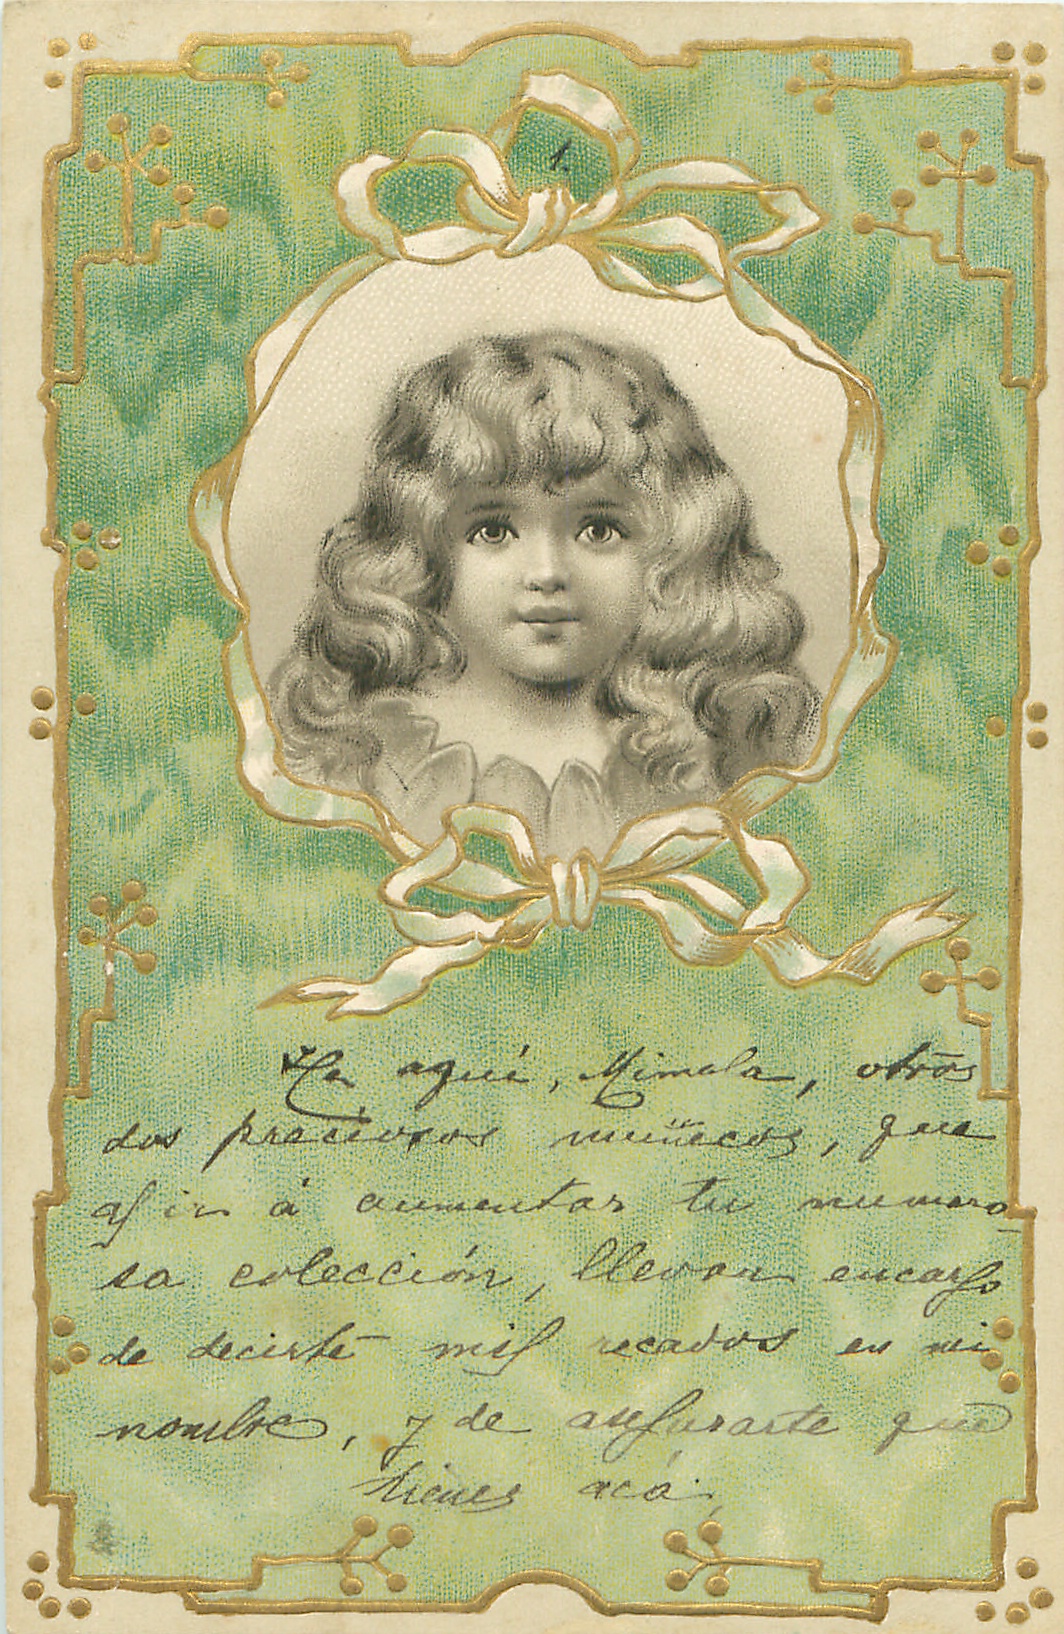 1.
He aquí, Mimala, otros
dos preciosos muñecos, que
al ir á aumentar tu numero-
sa colección, llevan encargo
de decirte mil recados en mi
nombre, y de asegurarte que
tienes acá,